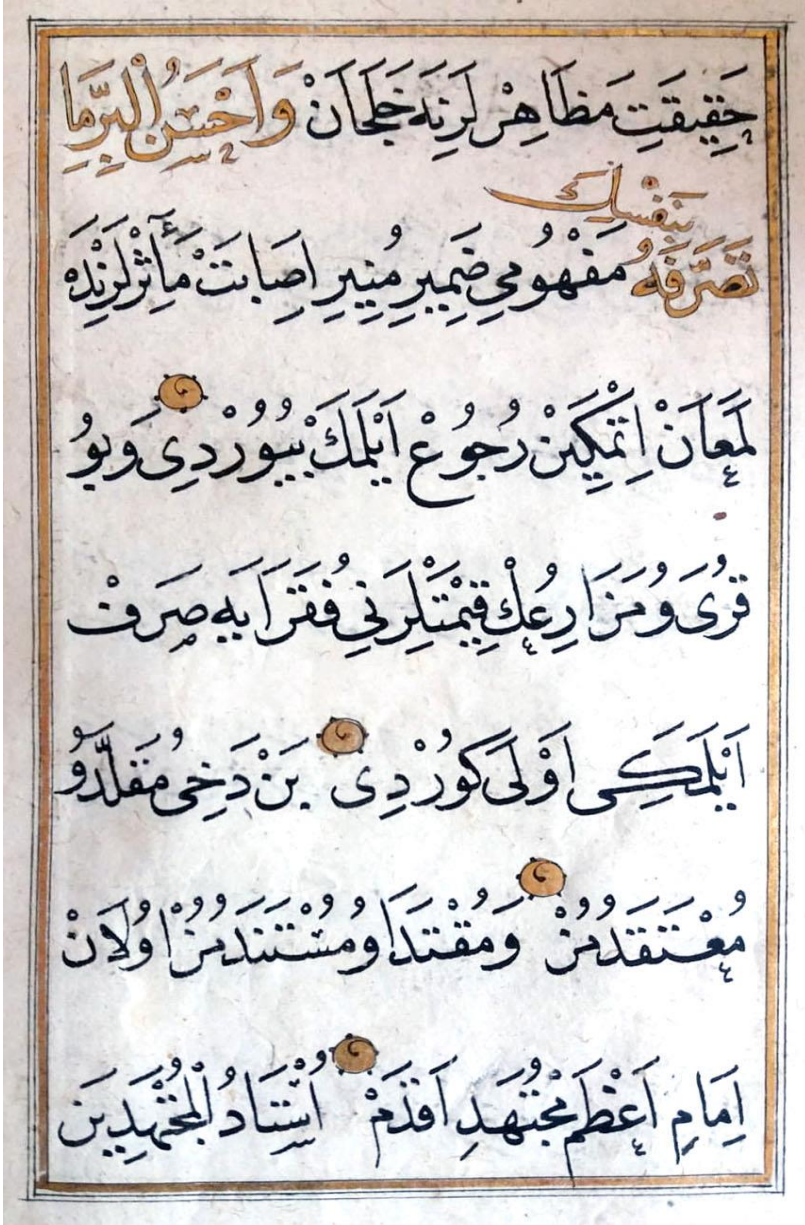 حَقِيقَتِ مَظَاهِرْلَرِنَه خَلَجَانْ وَاَحْسَنُ الْبِرِّمَا
بِنَفْسِكَ
تَصَرَّفَهُ مَفْهُومِي ضَمِيرِ مُنِيرِ اِصَابَتْ مَأٰثِرْلَرِنْدَه
لَمَعَانْ اِتْمَكِينْ رُجُوعْ اَيْلَمَكْ بُيُورْدِى وَبُو
قُرٰى وَمَزَارِعُكْ قِيمْتَلَرِنِي فُقَرَايَه صَرَفْ
اَيْلَمَكِى اَوْلَى كُورْدِى بَنْ دَخِى مُقَلَّدُو
مُعْتَقَدُمُزْ وَمُقْتَدَا وُمُسْتَنَدُمُزْ اُولَانْ
اِمَامِ اَعْظَمْ مُجْتَهَدِ اَقْدَمْ اُسْتَادُ الْمُجْتَهِدِينَ